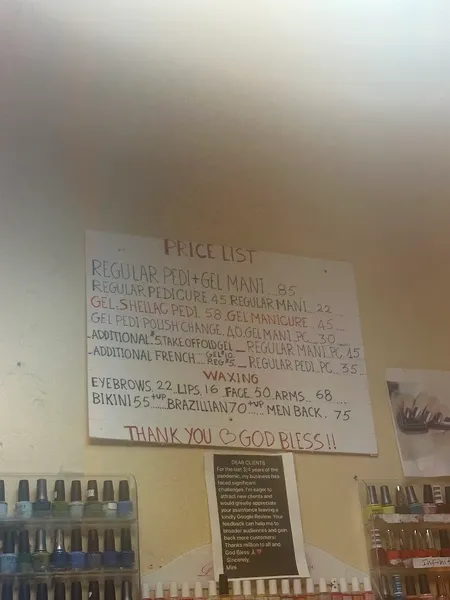 PRICE LIST
REGULAR PEDI + GEL MANI 85
REGULAR PEDICURE 45 REGULAR MANI 22
GEL-SHELLAC PEDI. 58 GEL MANICURE 45
GEL PEDI POLISH CHANGE 40. GEL MANI. PC 30
-ADDITIONAL TAKE OFF GEL _ REGULAR MANI. PC 15
-ADDITIONAL FRENCH GEL $10 REG $5 _ REGULAR PEDI. PC. 35
WAXING
EYEBROWS 22 LIPS 16 FACE 50 ARMS 68
BIKINI 55 +UP BRAZILIAN 70 +UP MEN BACK. 75
THANK YOU GOD BLESS!!
DEAR CLIENTS
For the last 3,4 years of the
pandemic, my business has
faced significant
challenges. I'm eager to
attract new clients and
would greatly appreciate
your assistance leaving a
kindly Google Review. Your
feedback can help me to
broader audiences and gain
back more customers!
Thanks million to all and
God Bless
Sincerely,
Mim